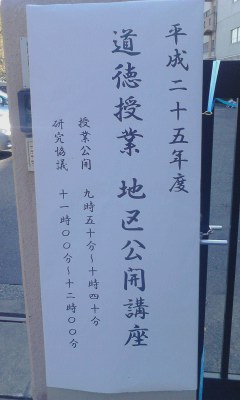 平成二十五年度
道徳授業 地区公開講座
授業公開 九時五十分~十時四十分
研究協議 十一時〇〇分~十二時〇〇分